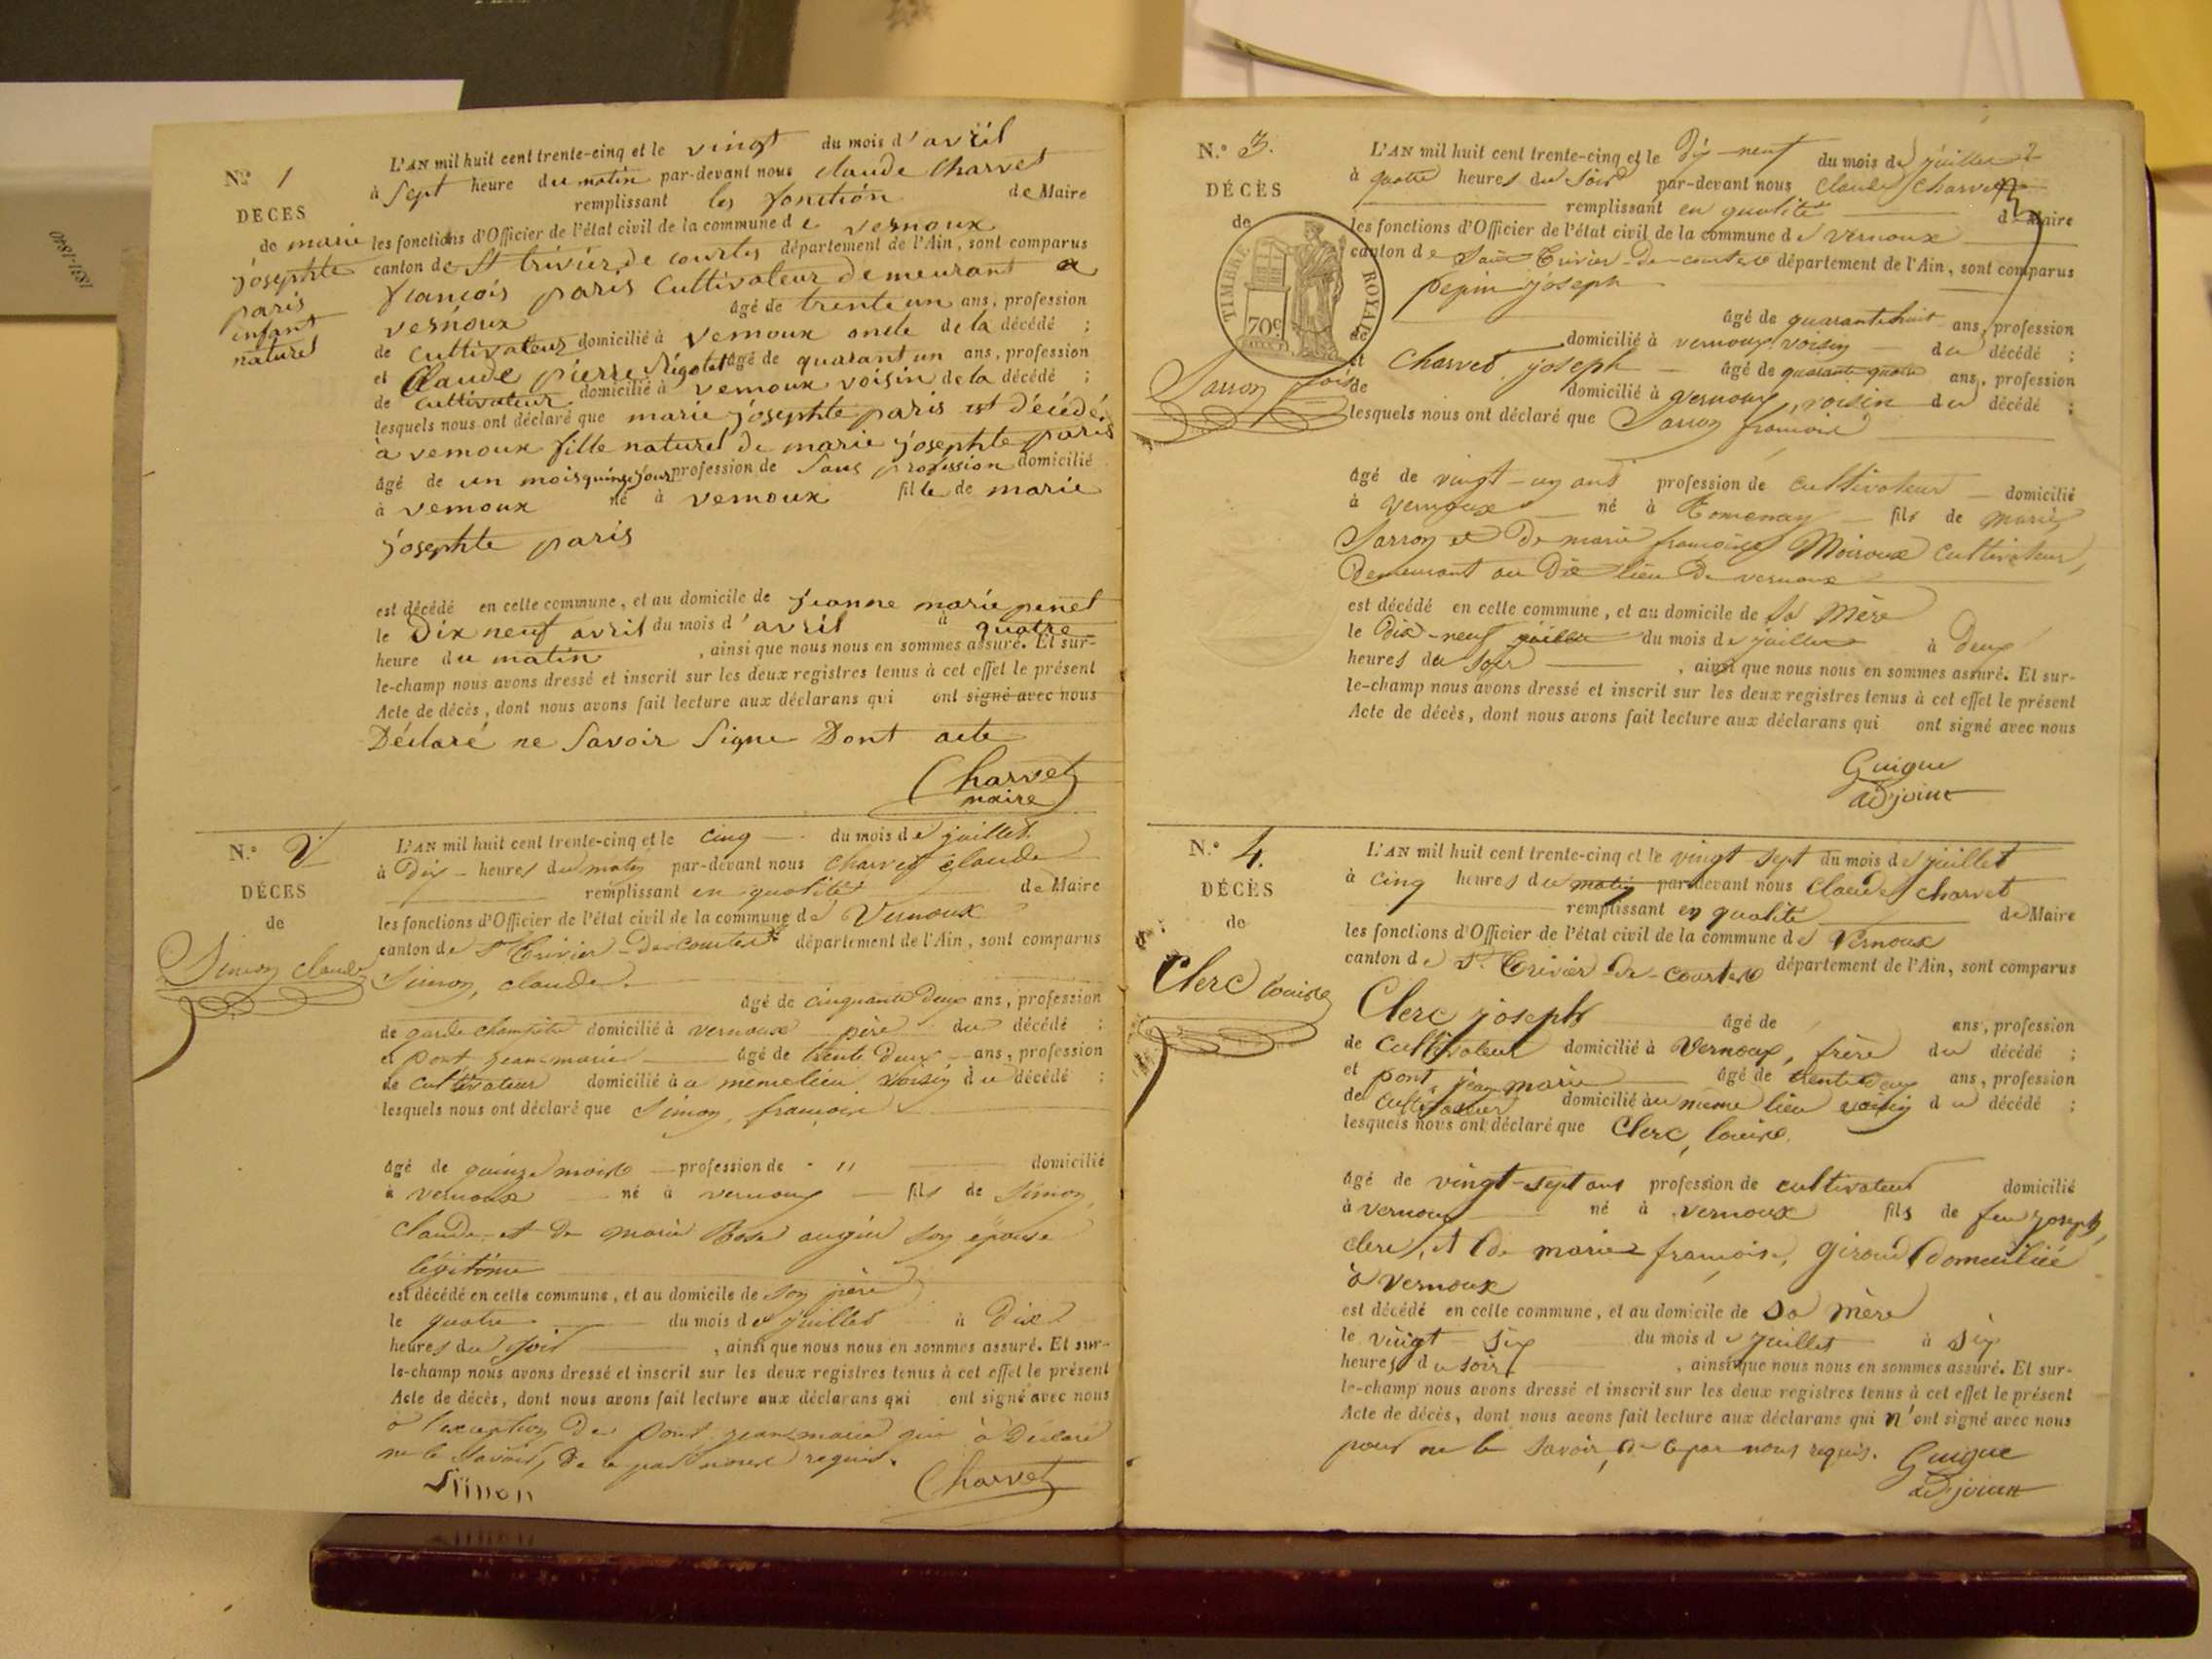 1831-1840
N.º 1
DÉCES
de marie
josephte
paris
enfant
naturel
L'AN mil huit cent trente-cinq et le vingt du mois d'avril
à sept heure du matin par-devant nous claude Charvet
remplissant les fonction de Maire
les fonctions d'Officier de l'état civil de la commune de vernoux
canton de St trivier de courtes département de l'Ain, sont comparus
françois paris cultivateur demeurant a
vernoux âgé de trente un ans, profession
de cultivateur domicilié à vernoux oncle de la décédé ;
et Claude pierre Rigolet âgé de quarant un ans, profession
de cultivateur domicilié à vernoux voisin de la décédé ;
lesquels nous ont déclaré que marie josephte paris est décédé
à vernoux fille naturel de marie josephte paris
âgé de un mois quinze jours profession de sans profession domicilié
à vernoux né à vernoux fille de marie
josephte paris
est décédé en cette commune, et au domicile de jeanne marie penet
le Dix neuf avril du mois d'avril à quatre
heure du matin , ainsi que nous nous en sommes assuré. Et sur-
le-champ nous avons dressé et inscrit sur les deux registres tenus à cet effet le présent
Acte de décès, dont nous avons fait lecture aux déclarans qui ont signé avec nous
Déclaré ne savoir signe Dont acte
Charvet
maire
N.º 2
DÉCES
de
Simon claude
L'AN mil huit cent trente-cinq et le cinq du mois de juillet
à Dix heures du matin par-devant nous charvet claude
remplissant en qualité de Maire
les fonctions d'Officier de l'état civil de la commune de Vernoux
canton de St Trivier-De-Courtes département de l'Ain, sont comparus
Simon, claude.
âgé de cinquante Deux ans, profession
de garde champêtre domicilié à vernoux père du décédé ;
et pont jean-marie âgé de trente Deux ans, profession
de cultivateur domicilié à u meme lieu voisin du décédé ;
lesquels nous ont déclaré que Simon, françois
âgé de quinze mois profession de " domicilié
à vernoux né à vernoux fils de Simon,
claude et de marie Rose augier son épouse
légitime
est décédé en cette commune, et au domicile de son père
le quatre du mois de juillet à Dix
heures du soir , ainsi que nous nous en sommes assuré. Et sur-
le-champ nous avons dressé et inscrit sur les deux registres tenus à cet effet le présent
Acte de décès, dont nous avons fait lecture aux déclarans qui ont signé avec nous
à l'exception de pont jean marie qui à Déclaré
ne le savoir, de ce par nous requis.
Simon Charvet
N.º 3.
DÉCÈS
de
TIMBRE ROYAL
70c
Sarron
L'AN mil huit cent trente-cinq et le Dix-neuf du mois de juillet
à quatre heures du soir par-devant nous claude charvet
remplissant en qualité de Maire
les fonctions d'Officier de l'état civil de la commune de vernoux
canton de Saint Trivier-De-courtes département de l'Ain, sont comparus
pepin joseph
âgé de quarantehuit ans, profession
de domicilié à vernoux voisin du décédé ;
et Charvet joseph âgé de quarante quatre ans, profession
de domicilié à vernoux, voisin du décédé ;
lesquels nous ont déclaré que Sarron francois
âgé de vingt-un ans profession de cultivateur domicilié
à vernoux né à Romenay fils de marie
Sarron et De marie francoise Moiroux cultivateur,
Demeurant au Dit lieu De vernoux
est décédé en cette commune, et au domicile de sa mère
le Dix-neuf juillet du mois de juillet à Deux
heures du soir , ainsi que nous nous en sommes assuré. Et sur-
le-champ nous avons dressé et inscrit sur les deux registres tenus à cet effet le présent
Acte de décès, dont nous avons fait lecture aux déclarans qui ont signé avec nous
Guigue
adjoint
N.º 4.
DÉCÈS
de
Clerc louis
L'AN mil huit cent trente-cinq et le vingt sept du mois de juillet
à cinq heures du matin par-devant nous Claude charvet
remplissant en qualité de Maire
les fonctions d'Officier de l'état civil de la commune de Vernoux
canton de St. Trivier-de-courtes département de l'Ain, sont comparus
Clerc joseph âgé de ans, profession
de cultivateur domicilié à Vernoux, frère du décédé ;
et pont, jean marie âgé de trente deux ans, profession
de cultivateur domicilié au meme lieu voisin du décédé ;
lesquels nous ont déclaré que Clerc, louis.
âgé de vingt-sept ans profession de cultivateur domicilié
à vernoux né à vernoux fils de feu joseph,
clerc, et De marie francoise, giroud Domiciliée
à vernoux
est décédé en cette commune, et au domicile de sa mère
le vingt six du mois de juillet à six
heures du soir , ainsi que nous nous en sommes assuré. Et sur-
le-champ nous avons dressé et inscrit sur les deux registres tenus à cet effet le présent
Acte de décès, dont nous avons fait lecture aux déclarans qui n'ont signé avec nous
pour ne le savoir, de ce par nous requis. Guigue
adjoint